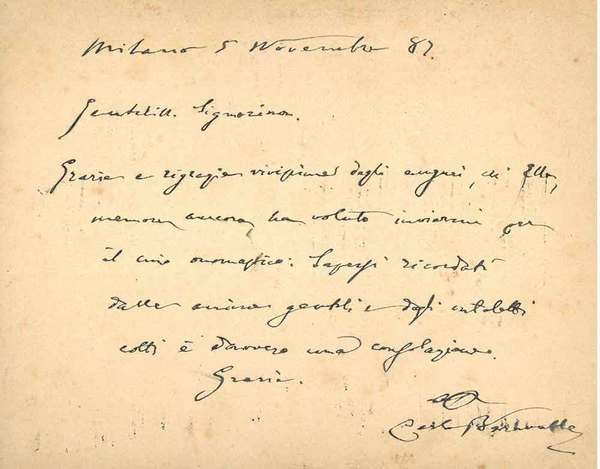 Milano 5 Novembre 87.
Gentiliss. Signorina.
Grazie e rigrazie vivissime degli auguri, che Ella,
memore ancora, ha voluto inviarmi per
il mio onomastico. Sapersi ricordati
dalle anime gentili e dagli intelletti
colti è davvero una consolazione.
Grazie.
Carlo Baravalle